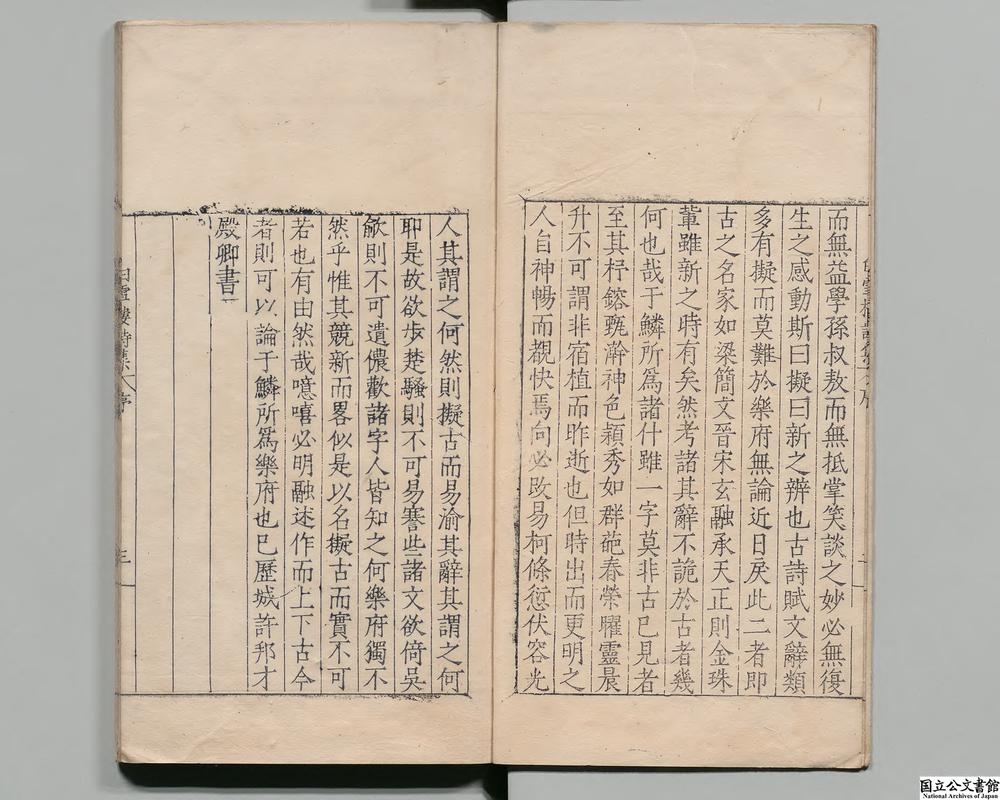 而無益學孫叔敖而無抵掌笑談之妙必無復
生之感動斯曰擬曰新之辨也古詩賦文辭類
多有擬而莫難於樂府無論近日戾此二者即
古之名家如梁簡文晉宋玄融承天正則金珠
葷雖新之時有矣然考諸其辭不詭於古者幾
何也哉于鱗所爲諸什雖一字莫非古已見者
至其杼鎔甄瀚神色穎秀如群葩春榮曜靈晨
升不可謂非宿植而昨逝也但時出而更明之
人自神暢而覩快焉向必改易柯條愆伏容光
人其謂之何然則擬古而易渝其辭其謂之何
耶是故欲步楚騷則不可易謇些諸文欲倚吳
歈則不可遣儂歡諸字人皆知之何樂府獨不
然乎惟其競新而畧似是以名擬古而實不可
若也有由然哉噫嘻必明融述作而上下古今
者則可以論于鱗所爲樂府也已歷城許邦才
殿卿書
白雪樓詩集 序
三
国立公文書館
National Archives of Japan